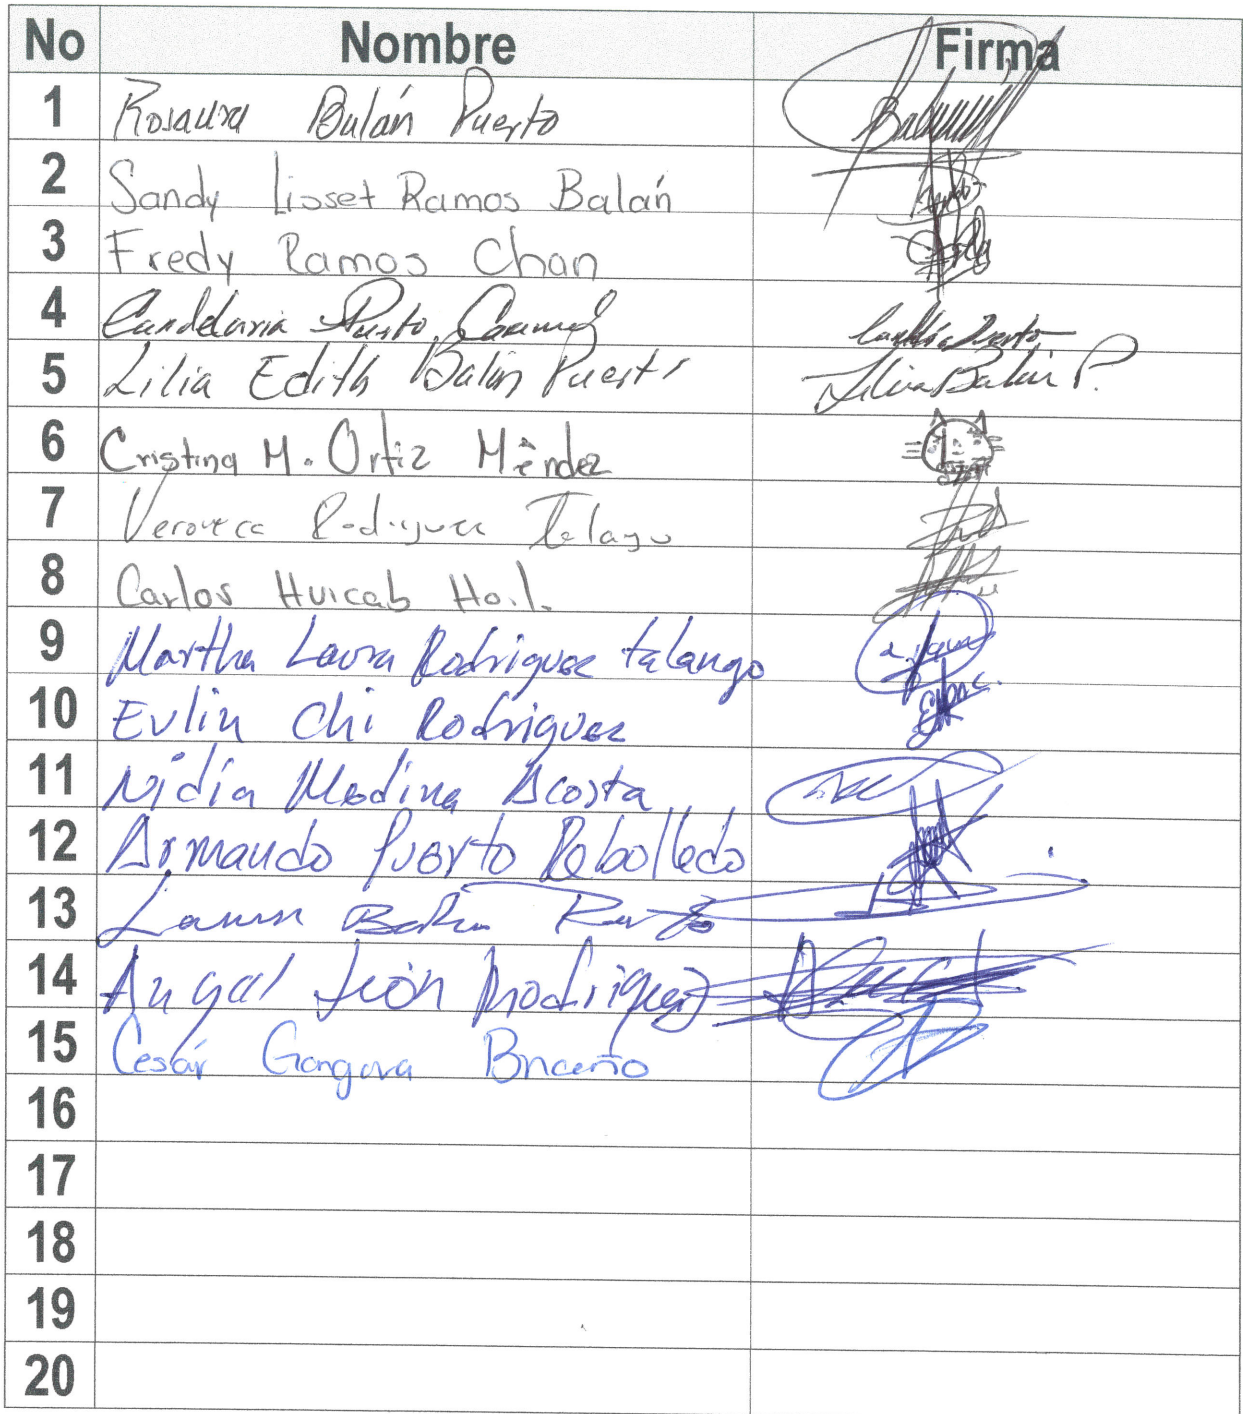 No Nombre Firma
1 Rosaura Balán Puerto
2 Sandy Lisset Ramos Balán
3 Fredy Ramos Chan
4 Candelaria Puerto
5 Lilia Edith Balán Puerto Lilia Balán P.
6 Cristina M. Ortiz Méndez
7 Veronica Rodriguez Talango
8 Carlos Huicab Hoil.
9 Martha Laura Rodriguez talango
10 Evlin Chi Rodriguez
11 Nidia Medina Acosta
12 Armando Puerto Rebolledo
13 Laura Balan Puerto
14 Angel León Rodriguez
15 Cesár Gongora Briceño
16
17
18
19
20